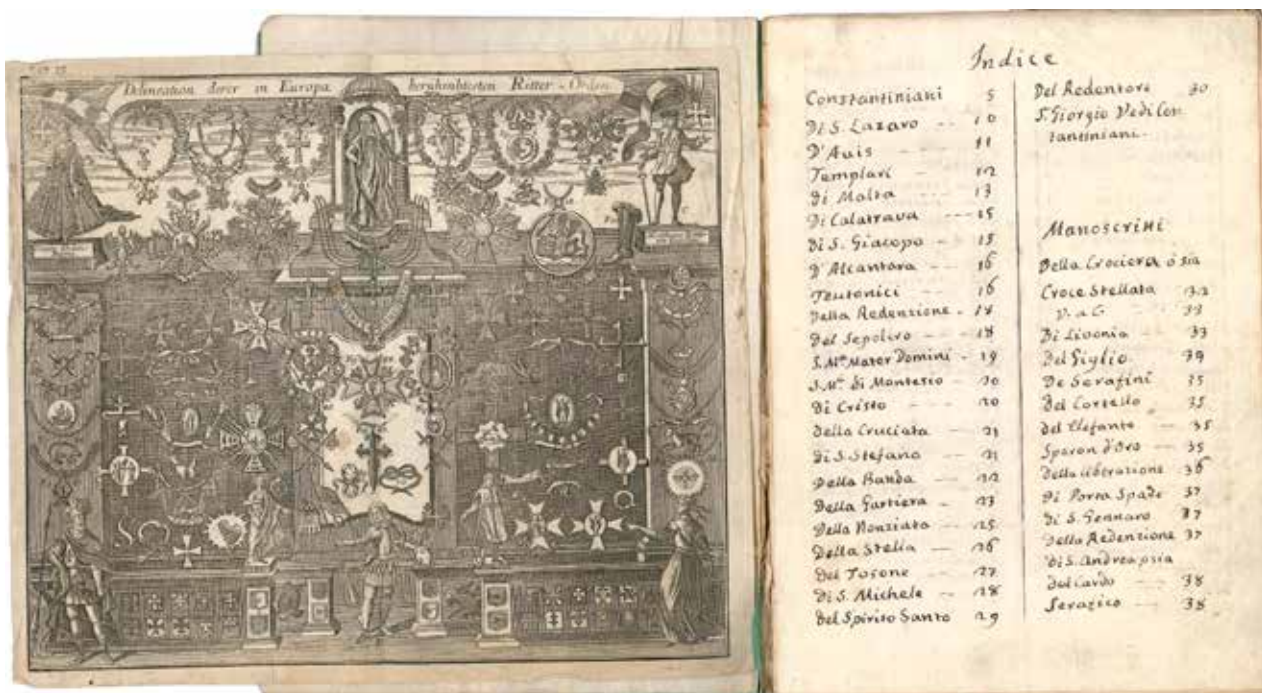 Delineation derer in Europa berühmbtesten Ritter-Orden
Indice
Constantiniani 5
Di S. Lazaro -- 10
D'Auis -- 11
Templari - 12
di Malta --- 13
Di Calatrava --- 15
Di S. Giacopo -- 15
d'Alcantara -- 16
Teutonici -- 16
Della Redenzione - 18
Del Sepolcro -- 18
S. Mª Mater Domini - 19
S. Mª di Montesio -- 20
Di Cristo -- 20
Della Cruciata -- 21
Di S. Stefano -- 21
Della Banda -- 22
Della Gartiera -- 23
Della Nonziata -- 25
Della Stella -- 26
Del Tosone -- 27
Di S. Michele -- 28
Del Spirito Santo 29
Del Redentore 30
S. Giorgio Vedi Con
tantiniani.
Manoscritti
Della Crociera ó sia
Croce Stellata 32
33
Di Livonia -- 33
Del Giglio 39
De Serafini 35
Del Cortello 35
del Elefante -- 35
Speron d'Oro -- 35
Della liberazione 36
Di Porta Spade 37
Di S. Gennaro 37
Della Redenzione 37
di S. Andrea osia
del Cardo -- 38
Serafico --- 38